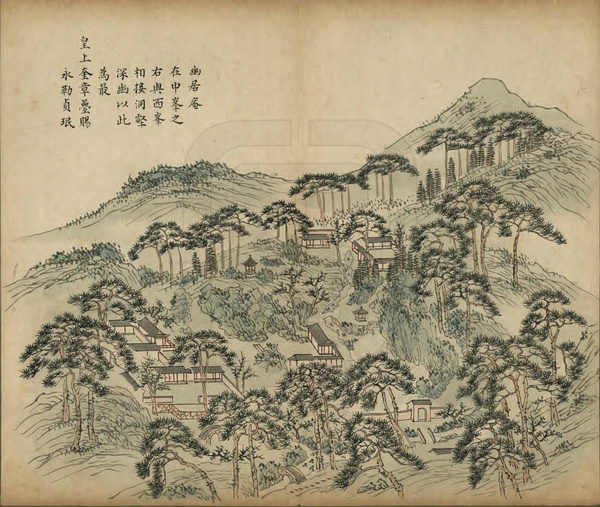 幽居菴
在中峯之
右與西峯
相接洞壑
深幽以此
為最
皇上奎章疊賜
永勒貞珉